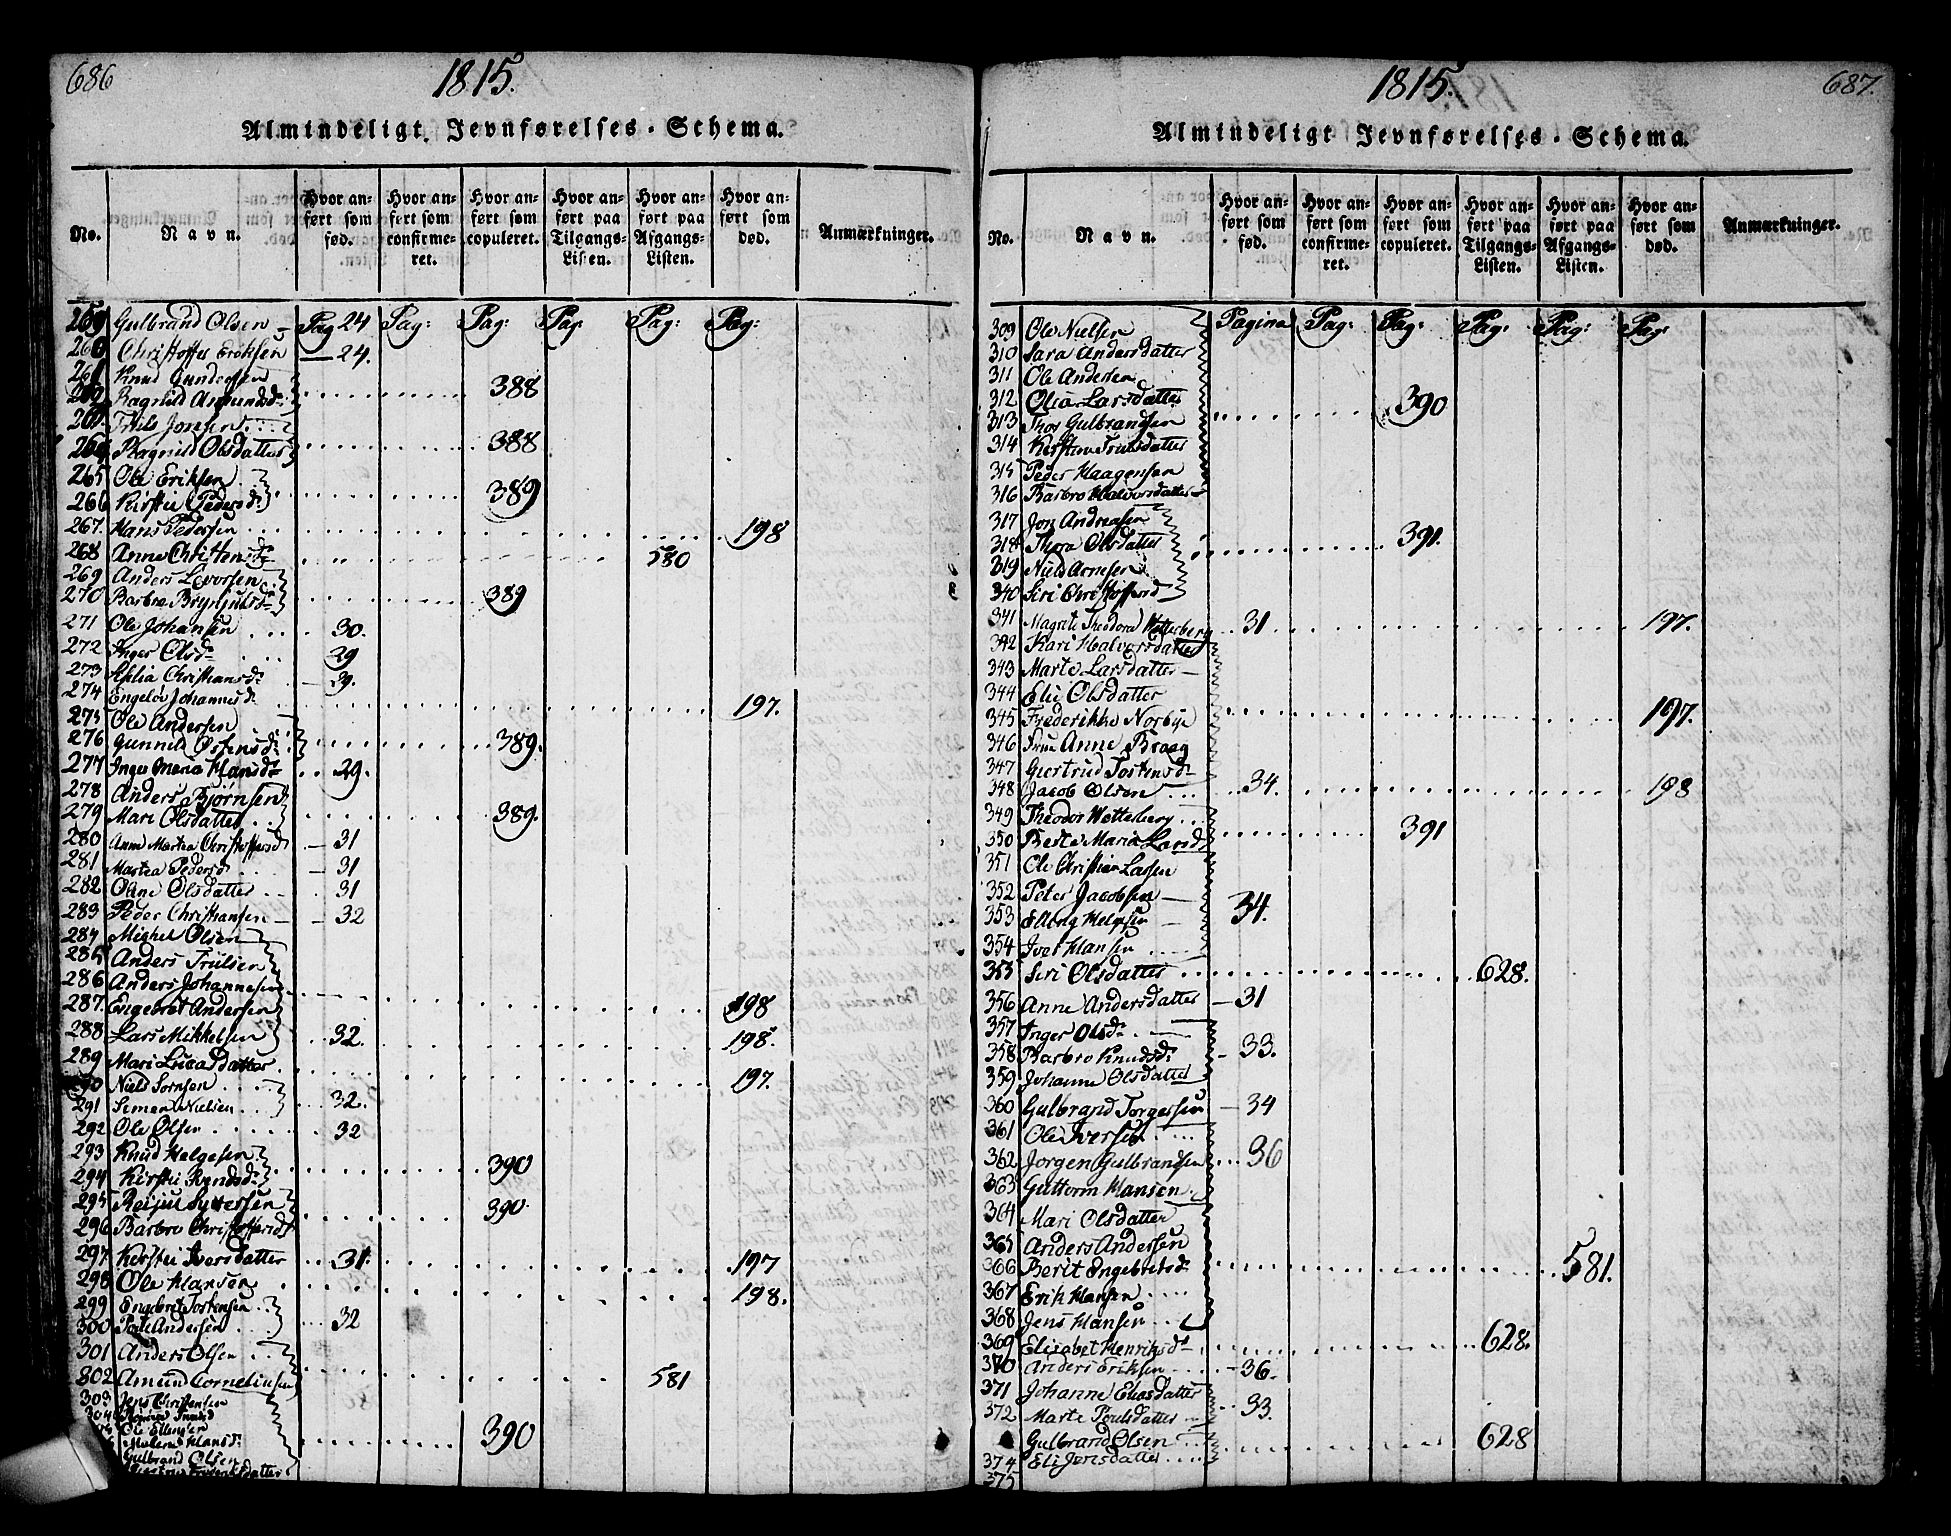 686
1815.
Almindeligt Jevnførelses-Schema.
No.
Navn.
Hvor anført som fød.
Hvor anført som confirmeret.
Hvor anført som copuleret.
Hvor anført paa Tilgangs-Listen.
Hvor anført paa Afgangs-Listen.
Hvor anført som død.
Anmærkninger.
259 Gulbrand Olsen Pag 24 Pag: Pag: Pag: Pag: Pag:
260 Christoffer Eriksen 24.
261 Knud Gundersen
262 Ragnild Amundsd. 388
263 Truls Jonsen
264 Ragnild Olsdatter 388
265 Ole Eriksen
266 Kirsti Pedersd. 389
267. Hans Pedersen 198
268 Anne Christensd. 580
269 Anders Levorsen
270 Barbro Brynjulsd. 389
271 Ole Johansen 30.
272 Inger Olsd. 29
273 Christiansd. 29.
274 Engeløv Johannesd. 197.
275 Ole Andersen
276 Gunnild Ostensd. 389.
277 Inger Maria Hansd. 29.
278 Anders Bjørnsen
279 Mari Olsdatter 389.
280 Anne Martea Christoffersd. 31
281 Martea Pedersd. 31
282 Oline Olsdatter 31
283 Peder Christiansen 32
284 Michel Olsen
285 Anders Trulsen
286 Anders Johannesen
287. Engebret Andersen 198
288 Lars Mikkelsen 32. 198.
289 Mari Lucasdatter 197.
290 Niels Sørnsen
291 Simen Nielsen 32.
292 Ole Olsen 32
293 Knud Helgesen
294 Kirsti Svendsd. 390
295 Reijul Syversen
296 Barbro Christoffersd. 390
297 Kirsti Iversdatter 31. 197
298 Ole Hansen 198.
299 Engebret Tostensen
300 Andersen 32
301 Anders Olsen
302 Amund Corneliusen 581
303 Jens Christensen
304
Ole Ellinger
Maleen Hansd. 390
Gulbrand Olsen
687.
1815.
Almindeligt Jevnførelses-Schema.
No.
Navn.
Hvor anført som fød.
Hvor anført som confirmeret.
Hvor anført som copuleret.
Hvor anført paa Tilgangs-Listen.
Hvor anført paa Afgangs-Listen.
Hvor anført som død.
Anmærkninger.
309 Ole Nielsen Pagina Pag: Pag: Pag: Pag: Pag:
310 Sara Andersdatter
311 Ole Andersen
312 Olea Larsdatter 390
313 Thor Gulbrandsen
314 Kirstine Trulsdatter
315 Peder Haagensen
316 Barbro Halvorsdatter
317 Jon Andreasen
318 Thora Olsdatter 391.
319 Niels Arnesen
340 Siri Christoffersd
341 Magrete Theodora Wetterberg 31 197.
342 Kari Halvorsdatter
343 Marte Larsdatter
344 Eli Olsdatter
345 Frederikke Norbye 197.
346 Frue Anne Braag
347 Giertrud Tostensd.
348 Jacob Olsen 34. 198
349 Theodor Wetterberg
350 Berte Maria Larsd. 391
351 Ole Christian Larsen
352 Peter Jacobsen
353 Elling Helgesen 34.
354 Iver Hansen
355 Siri Olsdatter 628.
356 Anne Andersdatter 31
357 Inger Olsd.
358 Barbro Knudsd. 33.
359 Johanne Olsdatter
360 Gulbrand Torgersen 34
361 Ole Iversen
362 Jorgen Gulbrandsen 36
363 Guttorm Hansen
364 Mari Olsdatter
365 Anders Andersen
366 Berit Engebretsd. 581.
367 Erik Hansen
368 Jens Hansen
369 Elisabet Henriksd. 628.
370 Anders Eriksen 36.
371 Johanne Eliasdatter
372 Marte Poulsdatter 33.
Gulbrand Olsen 628
374 Eli Jensdatter
375